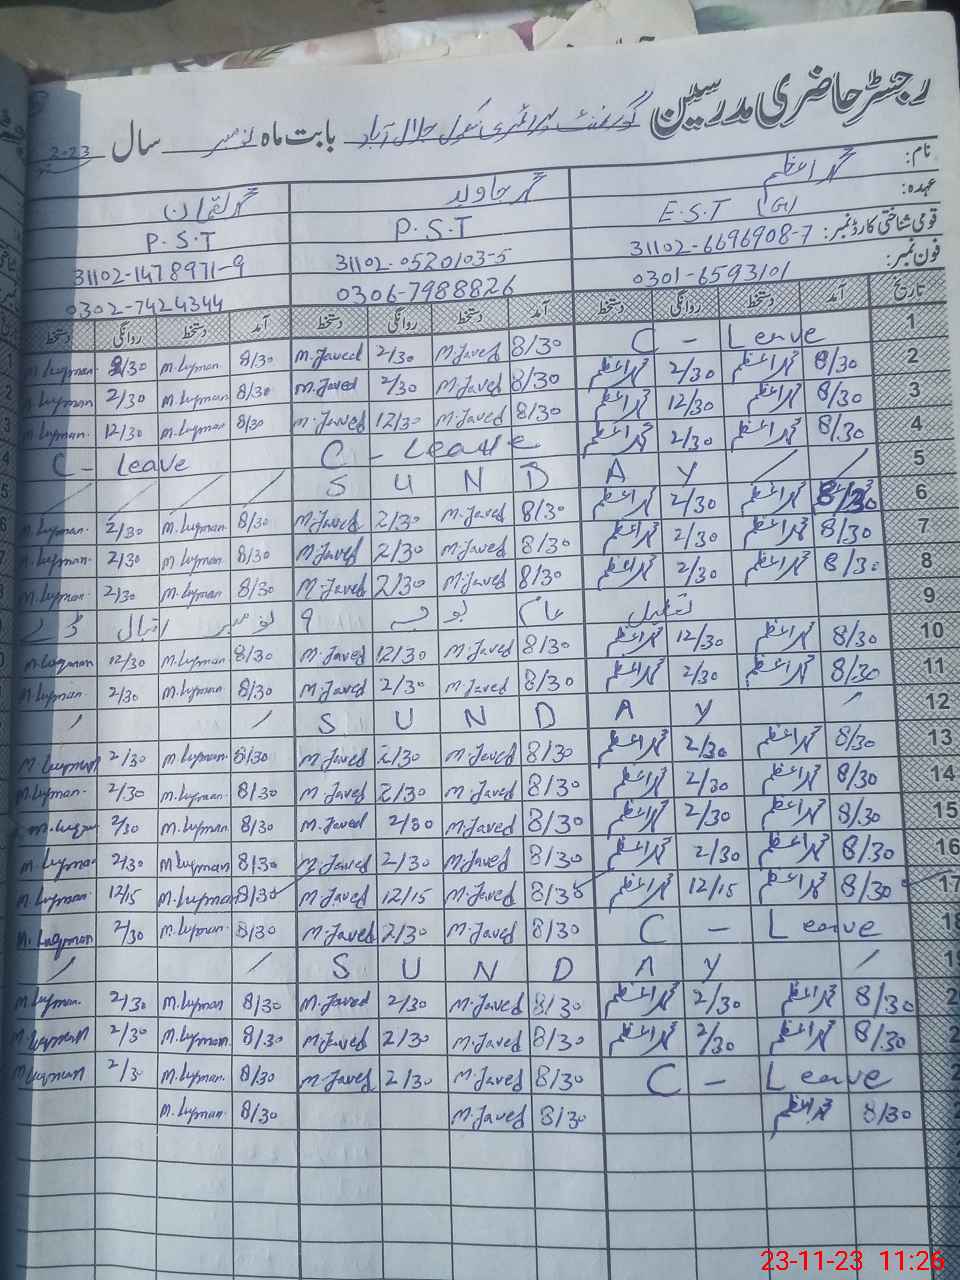 رجسٹر حاضری مدرسین گورنمنٹ پرائمری سکول جلال آباد بابت ماہ نومبر سال 2023
نام: محمد اعظم محمد جاوید محمد لقمان
عہدہ: E.S.T (G) P.S.T P.S.T
قومی شناختی کارڈ نمبر: 31102-6696908-7 31102-0520103-5 31102-1478971-9
فون نمبر: 0301-6593101 0306-7988826 0302-7424344
تاریخ آمد دستخط روانگی دستخط آمد دستخط روانگی دستخط آمد دستخط روانگی دستخط
1 C - Leave 8/30 M.Javed 2/30 M.Javed 8/30 M.Luqman 2/30 M.Luqman
2 8/30 محمد اعظم 2/30 محمد اعظم 8/30 M.Javed 2/30 M.Javed 8/30 M.Luqman 2/30 M.Luqman
3 8/30 محمد اعظم 12/30 محمد اعظم 8/30 M.Javed 12/30 M.Javed 8/30 M.Luqman 12/30 M.Luqman
4 8/30 محمد اعظم 2/30 محمد اعظم C - Leave C - Leave
5 S U N D A Y
6 8/30 محمد اعظم 2/30 محمد اعظم 8/30 M.Javed 2/30 M.Javed 8/30 M.Luqman 2/30 M.Luqman
7 8/30 محمد اعظم 2/30 محمد اعظم 8/30 M.Javed 2/30 M.Javed 8/30 M.Luqman 2/30 M.Luqman
8 8/30 محمد اعظم 2/30 محمد اعظم 8/30 M.Javed 2/30 M.Javed 8/30 M.Luqman 2/30 M.Luqman
9 تعطیل عام بوجہ 9 نومبر اقبال ڈے
10 8/30 محمد اعظم 12/30 محمد اعظم 8/30 M.Javed 12/30 M.Javed 8/30 M.Luqman 12/30 M.Luqman
11 8/30 محمد اعظم 2/30 محمد اعظم 8/30 M.Javed 2/30 M.Javed 8/30 M.Luqman 2/30 M.Luqman
12 S U N D A Y
13 8/30 محمد اعظم 2/30 محمد اعظم 8/30 M.Javed 2/30 M.Javed 8/30 M.Luqman 2/30 M.Luqman
14 8/30 محمد اعظم 2/30 محمد اعظم 8/30 M.Javed 2/30 M.Javed 8/30 M.Luqman 2/30 M.Luqman
15 8/30 محمد اعظم 2/30 محمد اعظم 8/30 M.Javed 2/30 M.Javed 8/30 M.Luqman 2/30 M.Luqman
16 8/30 محمد اعظم 2/30 محمد اعظم 8/30 M.Javed 2/30 M.Javed 8/30 M.Luqman 2/30 M.Luqman
17 8/30 محمد اعظم 12/15 محمد اعظم 8/30 M.Javed 12/15 M.Javed 8/30 M.Luqman 12/15 M.Luqman
18 C - Leave 8/30 M.Javed 2/30 M.Javed 8/30 M.Luqman 2/30 M.Luqman
S U N D A Y
8/30 محمد اعظم 2/30 محمد اعظم 8/30 M.Javed 2/30 M.Javed 8/30 M.Luqman 2/30 M.Luqman
8/30 محمد اعظم 2/30 محمد اعظم 8/30 M.Javed 2/30 M.Javed 8/30 M.Luqman 2/30 M.Luqman
C - Leave 8/30 M.Javed 2/30 M.Javed 8/30 M.Luqman 2/30 M.Luqman
8/30 محمد اعظم 8/30 M.Javed 8/30 M.Luqman
23-11-23 11:26